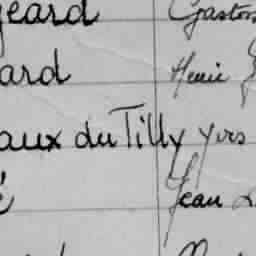 geard Gaston
ard Henri
aux du Tilly Yves
é Jean